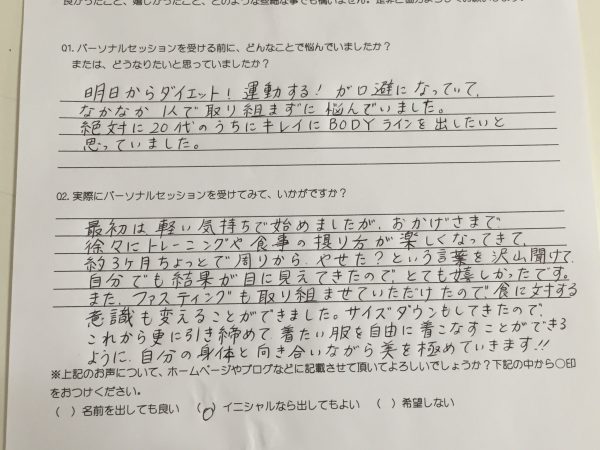 良かったこと、嬉しかったこと、どのような些細な事でも構いません。是非ご協力よろしくお願いします。
Q1. パーソナルセッションを受ける前に、どんなことで悩んでいましたか？
または、どうなりたいと思っていましたか？
明日からダイエット！運動する！が口避になっていて、
なかなか1人で取り組まずに悩んでいました。
絶対に20代のうちにキレイにBODYラインを出したいと
思っていました。
Q2. 実際にパーソナルセッションを受けてみて、いかがですか？
最初は軽い気持ちで始めましたが、おかげさまで、
徐々にトレーニングや食事の摂り方が楽しくなってきて、
約3ヶ月ちょっとで周りから、やせた？という言葉を沢山聞けて、
自分でも結果が目に見えてきたので、とても嬉しかったです。
また、ファスティングも取り組ませていただけたので、食に対する
意識も変えることができました。サイズダウンもしてきたので、
これから更に引き締めて、着たい服を自由に着こなすことができる
ように、自分の身体と向き合いながら美を極めていきます!!
※上記のお声について、ホームページやブログなどに記載させて頂いてよろしいでしょうか？下記の中から○印
をおつけください。
（ ）名前を出しても良い （○）イニシャルなら出してもよい （ ）希望しない